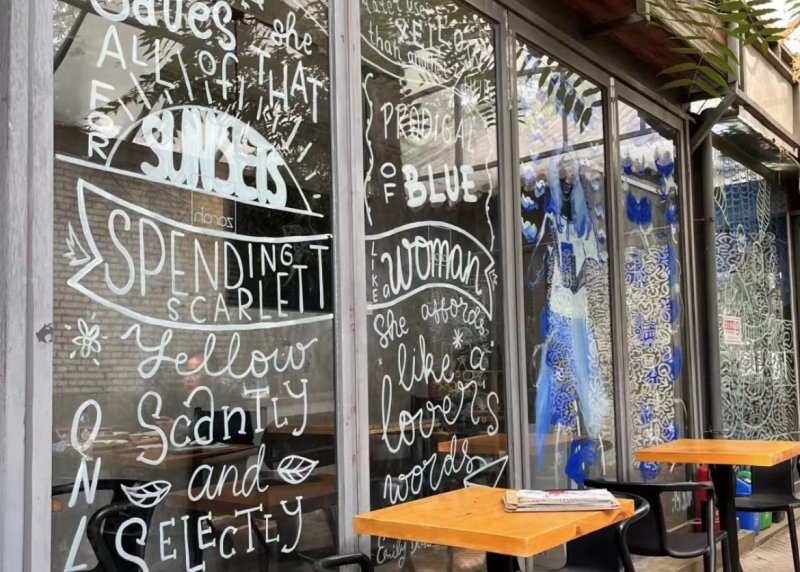 Saves she
ALL OF THAT
FOR
SUNSETS
SPENDING
SCARLETT
Yellow
ONLY
Scantly
and
SELECTLY
than
PRODIGAL
OF BLUE
LIKE a woman
She affords
like a
lover's
words
Emily